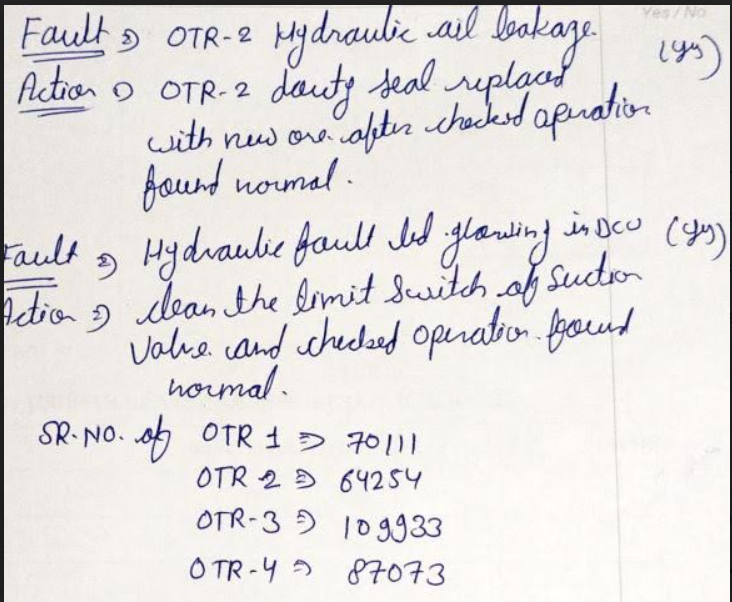 Yes/No
Fault ⇒ OTR-2 Hydraulic oil leakage. (Yy)
Action ⇒ OTR-2 douty seal replaced
with new one after checked operation
found normal.
Fault ⇒ Hydraulic fault led glowing in DCU (Yy)
Action ⇒ clean the limit Switch of Suction
Valve and checked operation found
normal.
SR. NO. of OTR 1 ⇒ 70111
OTR 2 ⇒ 64254
OTR-3 ⇒ 109933
OTR-4 ⇒ 87073